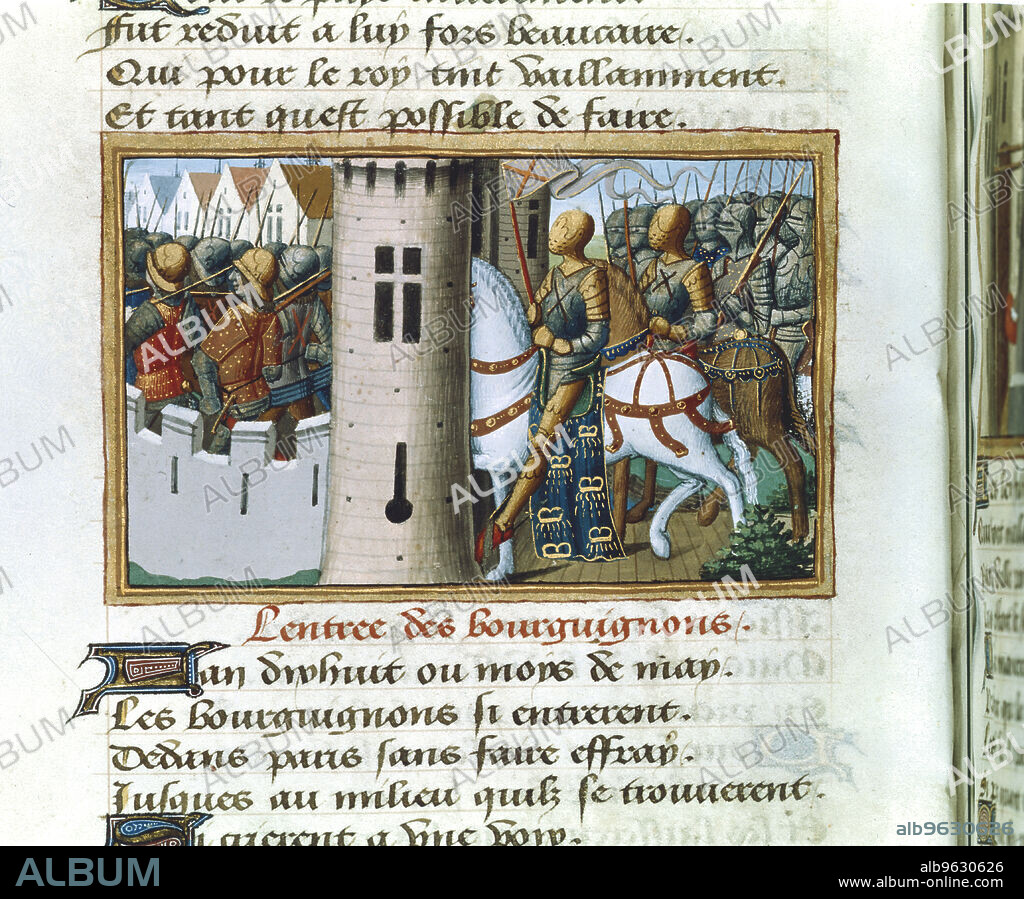 fut reduit a luy fors beaucaire.
Qui pour le roy tint vaillamment.
Et tant quest possible de faire.
Lentree des bourguignons.
Lan dixhuit ou moys de may.
Les bourguignons si entrerent.
Dedans paris sans faire effray.
Jusques au milieu quilz se trouverent.
Si crierent a une voix.
alb9630626
ALBUM
alb9630626
www.album-online.com